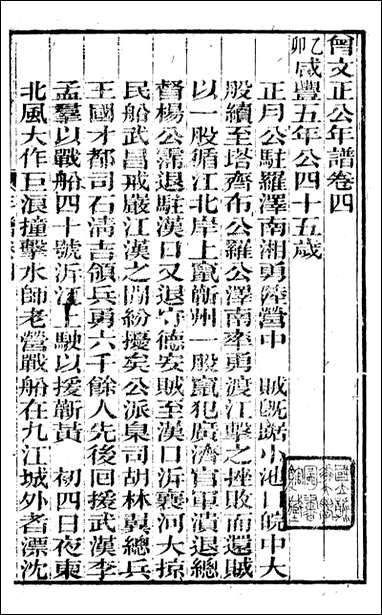 曾文正公年譜卷四
乙卯咸豐五年公四十五歲
正月公駐羅澤南湘勇陸營中　賊旣踞小池口皖中大
股續至塔齊布公羅公澤南率勇渡江擊之挫敗而還賊
以一股循江北岸上竄蘄州一股竄犯廣濟官軍潰退總
督楊公霈退駐漢口又退守德安賊至漢口泝襄河大掠
民船武昌戒嚴江漢之間紛擾矣公派臬司胡林翼總兵
王國才都司石清吉領兵勇六千餘人先後回援武漢李
孟羣以戰船四十號泝江上駛以援蘄黃　初四日夜東
北風大作巨浪撞擊水師老營戰船在九江城外者漂沈